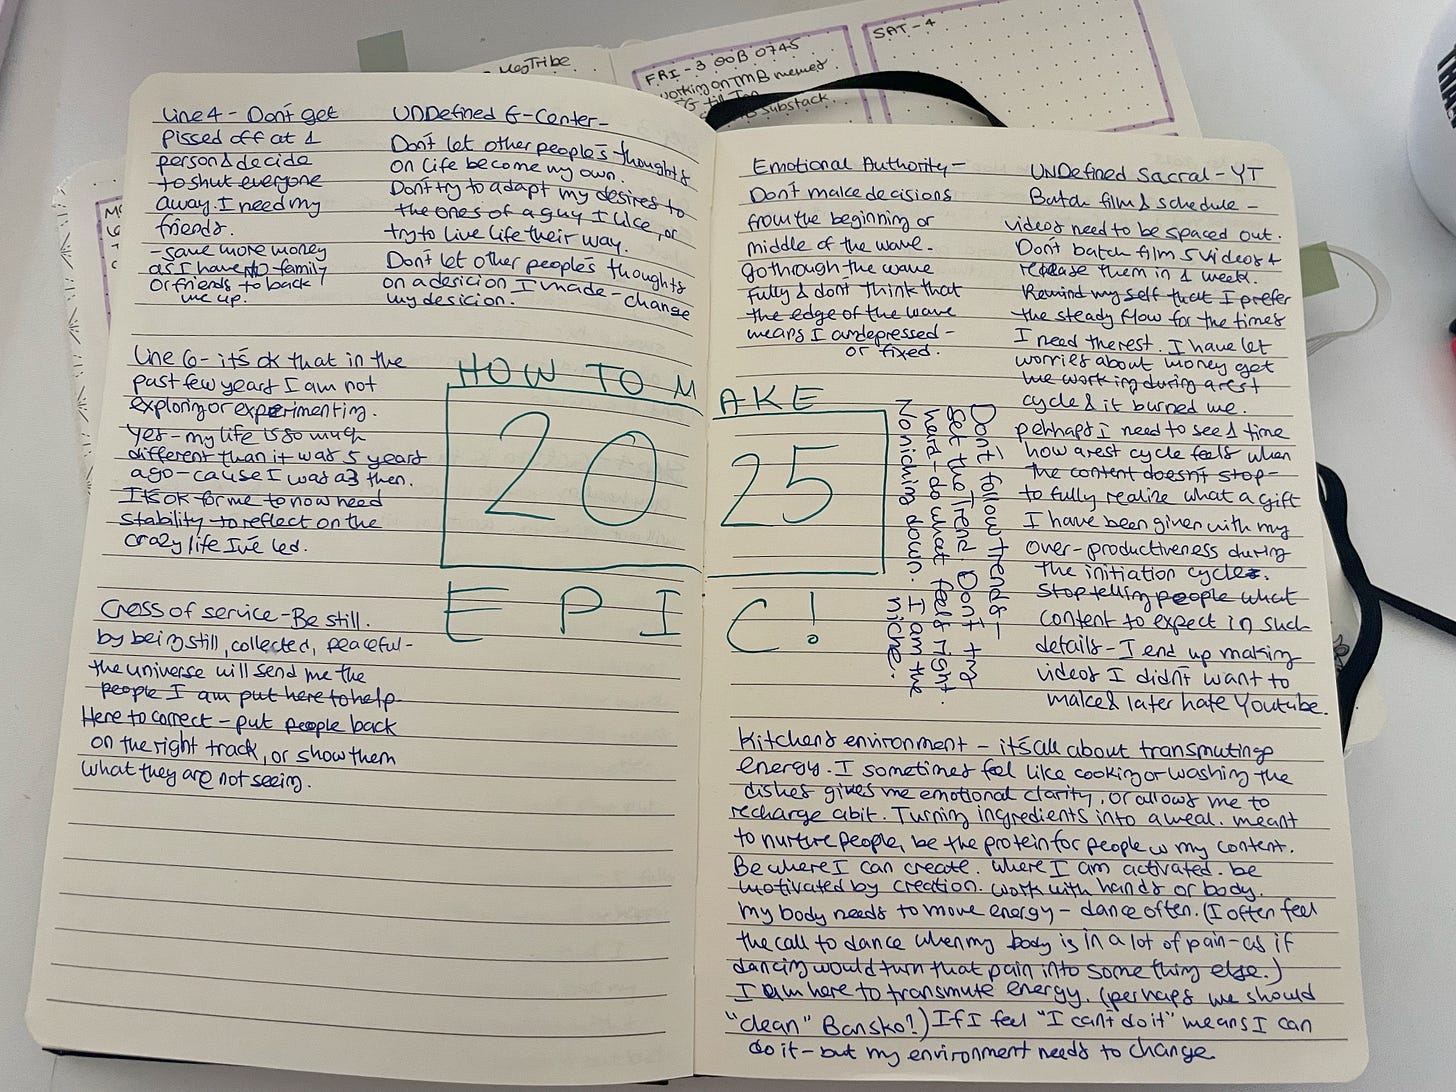 MegTribe
FRI-3 OOB 0745
working on TMB memes
substack.
SAT-4
Line 4 - Don't get
pissed off at 1
person & decide
to shut everyone
away. I need my
friends.
- save more money
as I have no family
or friends to back
me up.
UNDefined G-Center-
Don't let other people's thoughts
on life become my own.
Don't try to adapt my desires to
the ones of a guy I like, or
try to live life their way.
Don't let other people's thoughts
on a desicion I made - change
my desicion.
Line 6 - it's ok that in the
past few years I am not
exploring or experimenting.
Yes - my life is so much
different than it was 5 years
ago - cause I was a 3 then.
It's ok for me to now need
stability to reflect on the
crazy life I've led.
Cross of service - Be still.
by being still, collected, peaceful -
the universe will send me the
people I am put here to help
Here to correct - put people back
on the right track, or show them
what they are not seeing.
HOW TO MAKE
2025
EPIC!
Emotional Authority -
Don't make decisions
from the beginning or
middle of the wave.
go through the wave
fully & dont think that
the edge of the wave
means I am depressed -
or fixed.
UNDefined Sacral - YT
Batch film & schedule -
videos need to be spaced out.
Don't batch film 5 videos &
release them in 1 week.
Remind my self that I prefer
the steady flow for the times
I need the rest. I have let
worries about money get
me working during a rest
cycle & it burned me.
perhaps I need to see 1 time
how a rest cycle feels when
the content doesn't stop -
to fully realize what a gift
I have been given with my
over-productiveness during
the initiation cycles.
Stop telling people what
content to expect in such
details - I end up making
videos I didn't want to
make & later hate Youtube.
Don't follow trends -
Set the trend. Don't try
hard - do what feels right.
No niching down. I am the
niche.
Kitchens environment - it's all about transmuting
energy. I sometimes feel like cooking or washing the
dishes gives me emotional clarity, or allows me to
recharge a bit. Turning ingredients into a meal. meant
to nurture people, be the protein for people w my content.
Be where I can create. where I am activated. be
motivated by creation. work with hands or body.
my body needs to move energy - dance often. (I often feel
the call to dance when my body is in a lot of pain - as if
dancing would turn that pain into something else.)
I am here to transmute energy. (perhaps we should
"clean" Bansko?) If I feel "I can't do it" means I can
do it - but my environment needs to change.